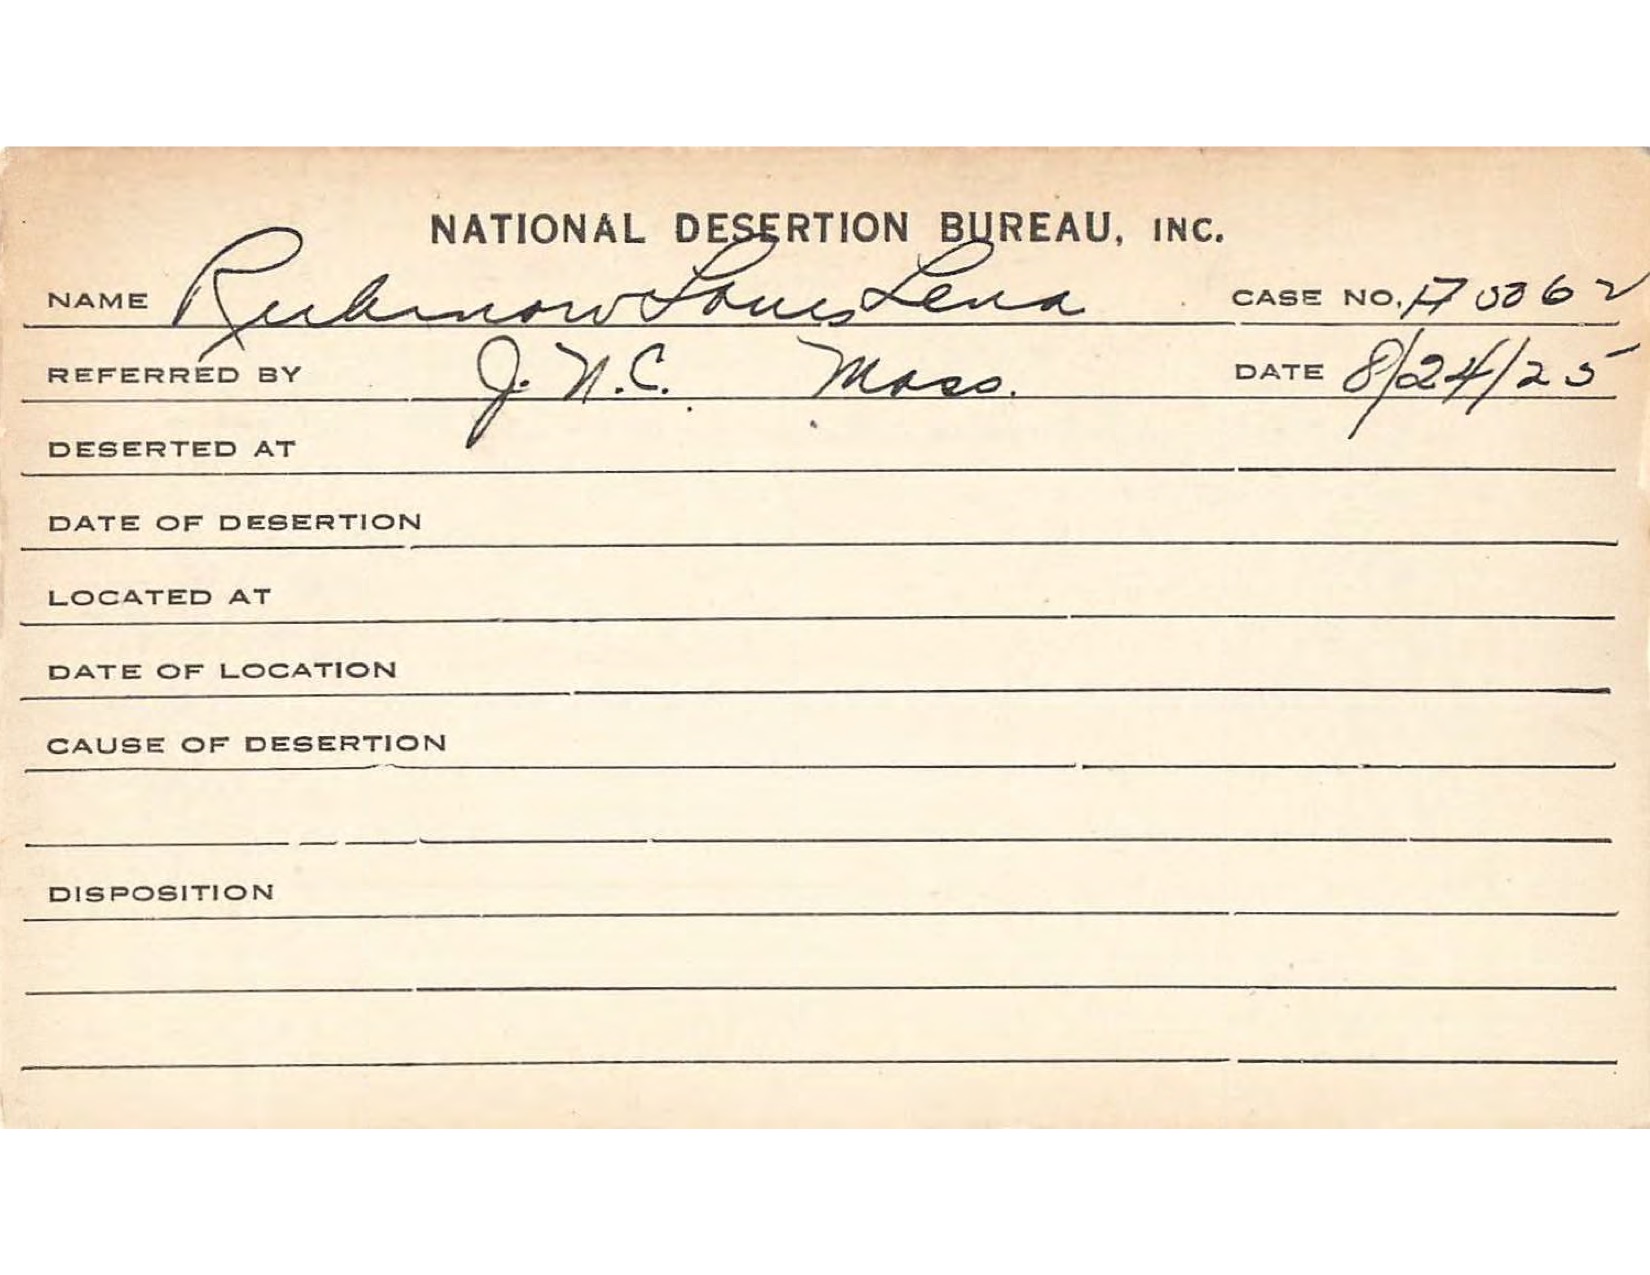 NATIONAL DESERTION BUREAU, INC.
NAME Rubinow Louis Lena CASE NO. A5062
REFERRED BY J.W.C. Mass. DATE 8/24/25
DESERTED AT
DATE OF DESERTION
LOCATED AT
DATE OF LOCATION
CAUSE OF DESERTION
DISPOSITION